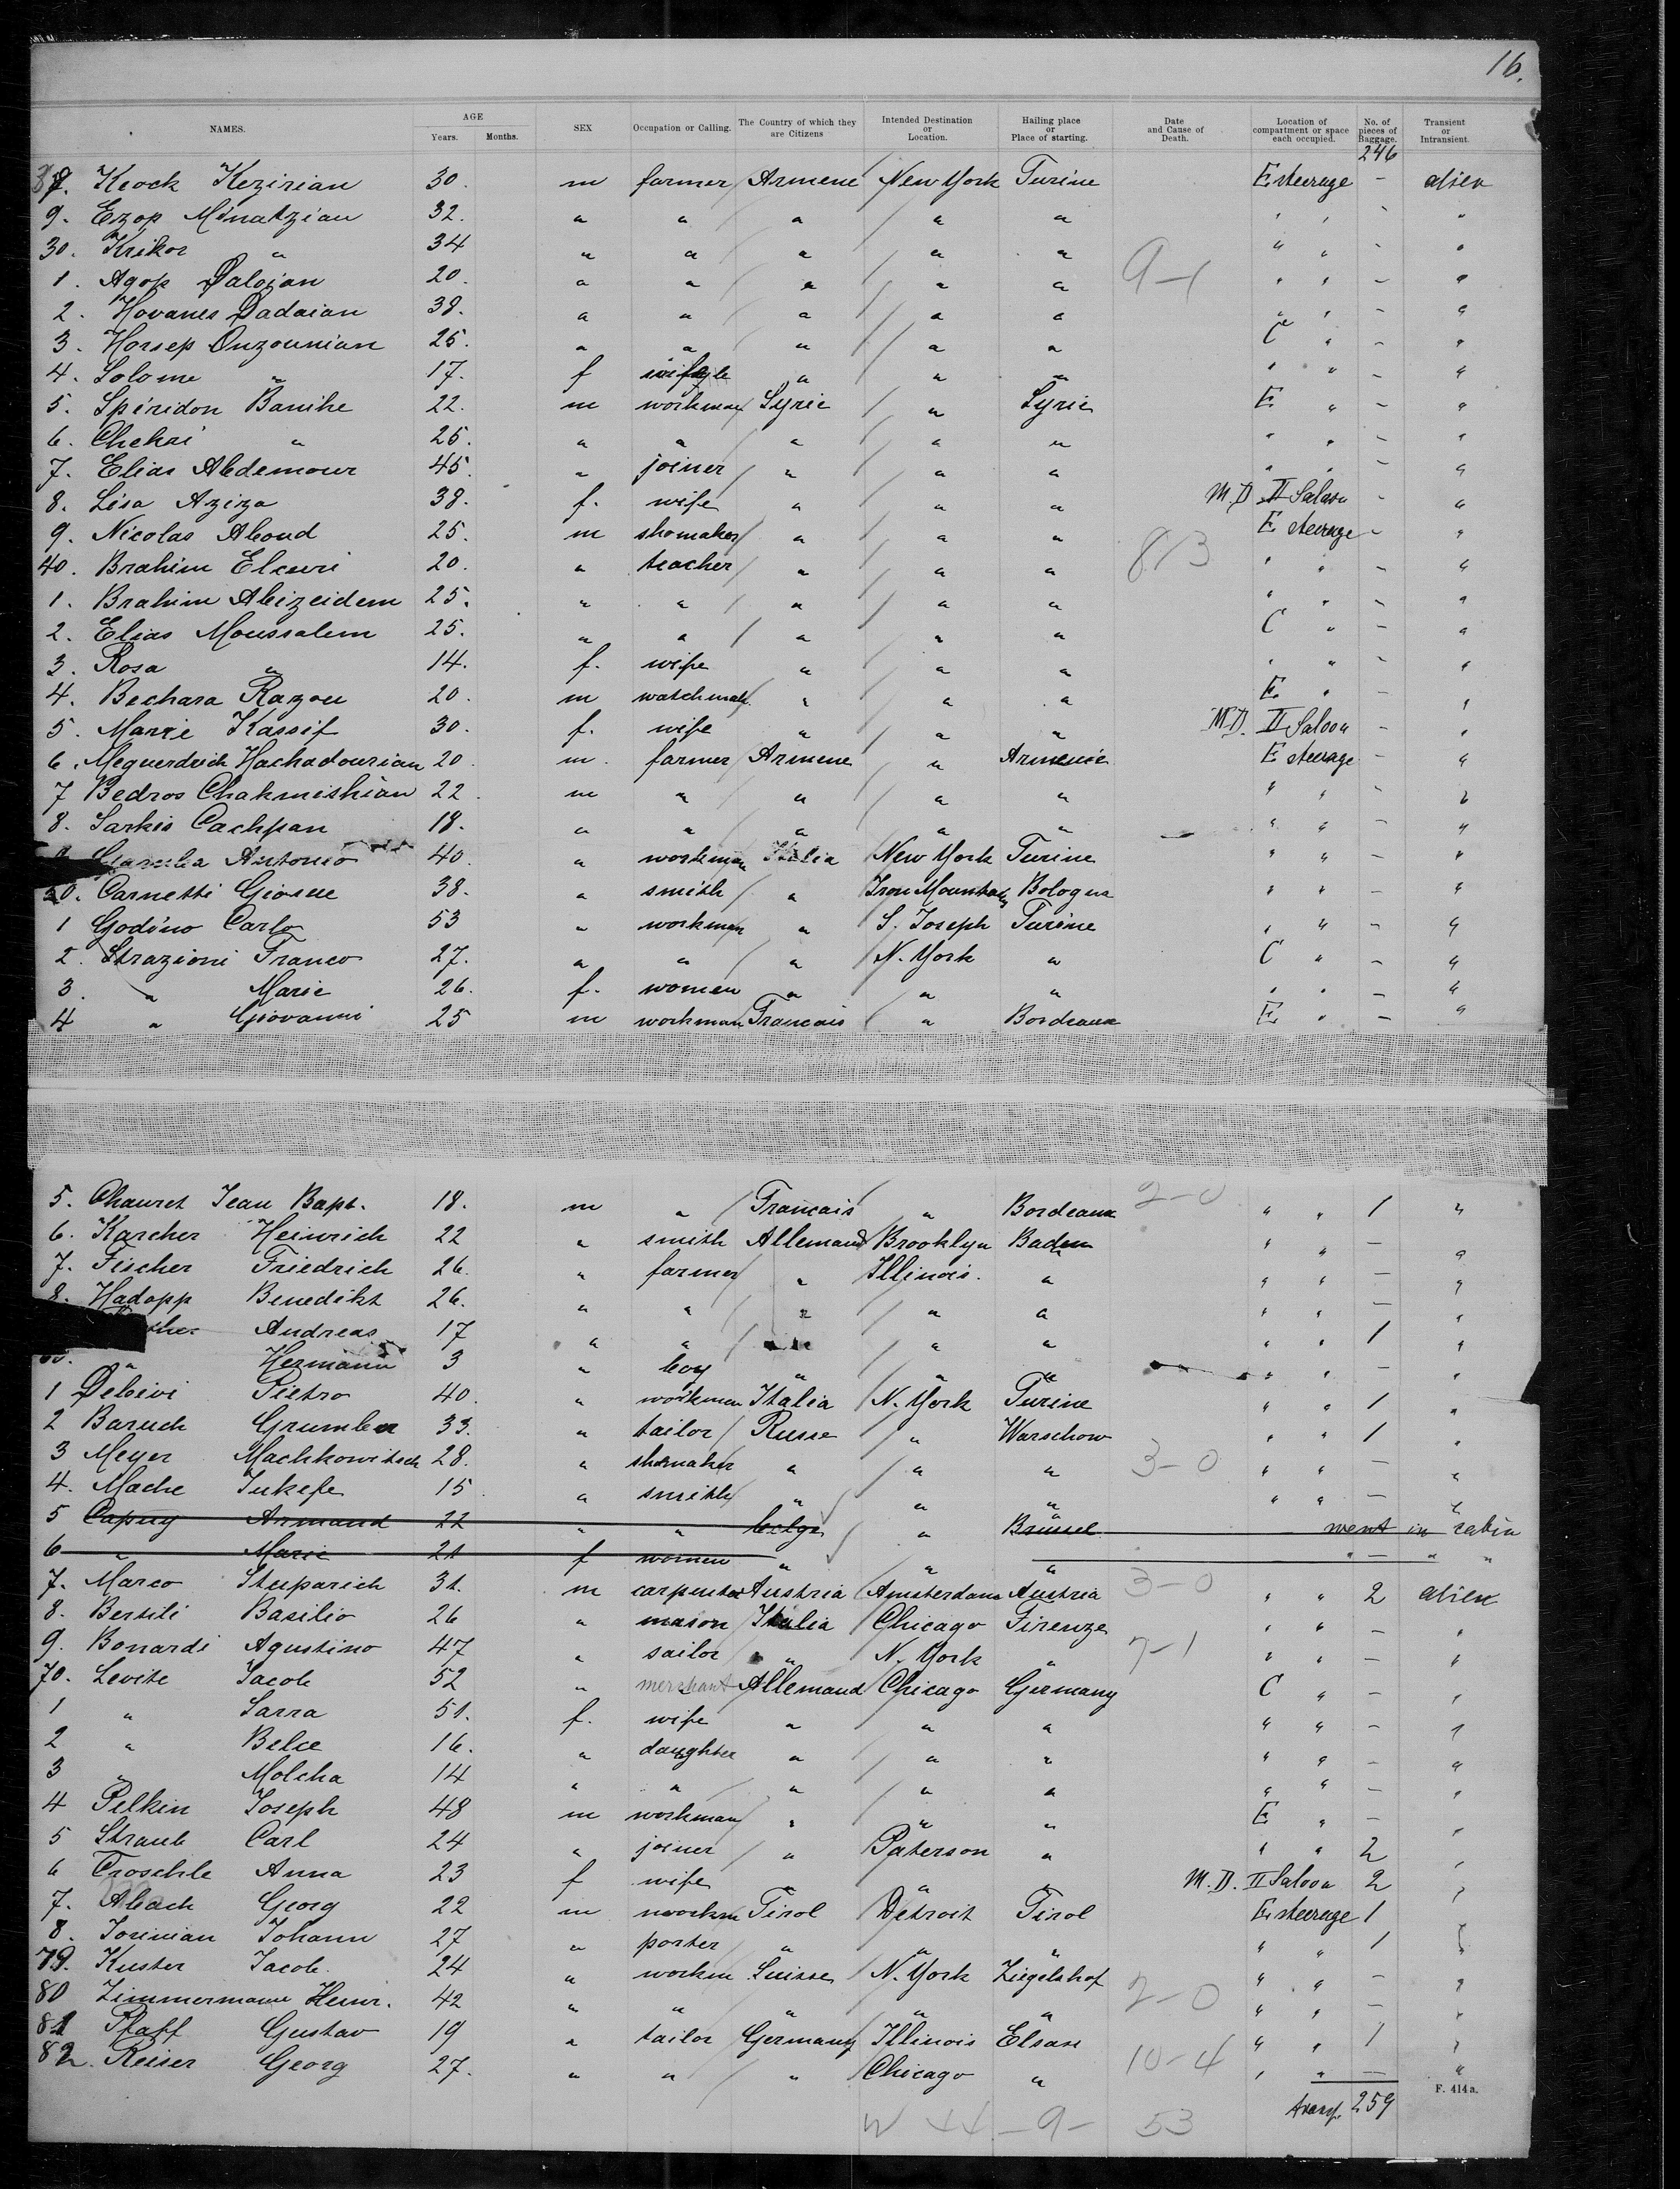 16.
NAMES. AGE Years. Months. SEX Occupation or Calling. The Country of which they are Citizens Intended Destination or Location. Hailing place or Place of starting. Date and Cause of Death. Location of compartment or space each occupied. No. of pieces of Baggage. Transient or Intransient.
246
Keock Kezirian 30. m farmer Armene New York Turine E steerage - alien
9. Ezop Minatzian 32. " " " " " " " - "
30. Krikor " 34 " " " " " " " - "
1. Agop Dalojan 20. " " " " " 9-1 " " - "
2. Hovanes Dadaian 38. " " " " " " " - "
3. Horsep Ouzounian 25. " " " " " C " - "
4. Solome " 17. f " " " " " - "
5. Spiridon Banihe 22. m workman Syrie " Syrie E " - "
6. Chekri " 25. " " " " " " " - "
7. Elias Abdemour 45. " joiner " " " " " - "
8. Lisa Aziza 38. f. wife " " " M.D. II Saloon - "
9. Nicolas Aboud 25. m shomaker " " " E steerage - "
40. Brahim Elcuri 20. " teacher " " " 8/3 " " - "
1. Brahim Abizeidem 25. " " " " " " " - "
2. Elias Moussalem 25. " " " " " C " - "
3. Rosa " 14. f. wife " " " " " - "
4. Bechara Razou 20. m watchmak. " " " E " - "
5. Marie Kassif 30. f. wife " " " M.D. II Saloon - "
6. Meguerdrich Hachadourian 20. m. farmer Armene " Armenie E steerage - "
7 Bedros Chakmishian 22. m " " " " " " - "
8. Sarkis Cachpan 18. " " " " " " " - "
Giamba Antonio 40. " workman Italia New York Turine " " - "
50. Carnetti Giosue 38. " smith " Iron Mountain Bologna " " - "
1 Godino Carlo 53 " workman " S. Joseph Turine " " - "
2. Strazioni Franco 27. " " " N. York " C " - "
3. " Marie 26. f. women " " " " " - "
4 " Giovanni 25 m workman Francais " Bordeaux E " - "
5. Chauret Jean Bapt. 18. m " Francais " Bordeaux 2-0 " " 1 "
6. Karcher Heinrich 22 " smith Allemand Brooklyn Baden " " - "
7. Fischer Friedrich 26. " farmer " Illinois. " " " - "
8. Hadopp Benedikt 26. " " " " " " " - "
Andreas 17 " " " " " " 1 "
60. " Hermann 3 " boy " " " " " - "
1 Debivi Pietro 40. " workman Italia N. York Turine " " 1 "
2 Baruch Grumber 33. " tailor Russe " Warschow " " 1 "
3 Meyer Machkowitsch 28. " shomaker " " " 3-0 " " - "
4. Mache Jukefe 15. " smith " " " " " - "
5 Capuy Armand 22 " " belge " Brüssel went in cabin
6 " Marie 21 f women " " " " - " "
7. Marco Stuparich 31. m carpenter Austria Amsterdam Austria 3-0 " " 2 alien
8. Bersili Basilio 26 " mason Italia Chicago Firenze " " - "
9. Bonardi Agustino 47 " sailor " N. York " 7-1 " " - "
70. Levite Jacob 52 " merchant Allemand Chicago Germany C " - "
1 " Sarra 51. f. wife " " " " " - "
2 " Belce 16. " daughter " " " " " - "
3 " Molcha 14 " " " " " " " - "
4 Pelkin Joseph 48 m workman " " " E " - "
5 Straub Carl 24 " joiner " Paterson " " " 2 "
6 Troschle Anna 23 f wife " " " M.D. II Saloon 2 "
7. Abach Georg 22 m workm Tirol Detroit Tirol E steerage 1 "
8. Johann 27 " porter " " " " " 1 "
79. Kuster Jacob. 24 " workm Suisse N. York Ziegelshof " " - "
80 Zimmermann Heinr. 42 " " " " " 2-0 " " - "
81 Pfaff Gustav 19 " tailor Germany Illinois Elsass " " 1 "
82. Reiser Georg 27. " " " Chicago " 10-4 " " - "
F. 414a.
transp. 259
W 44 - 9 - 53